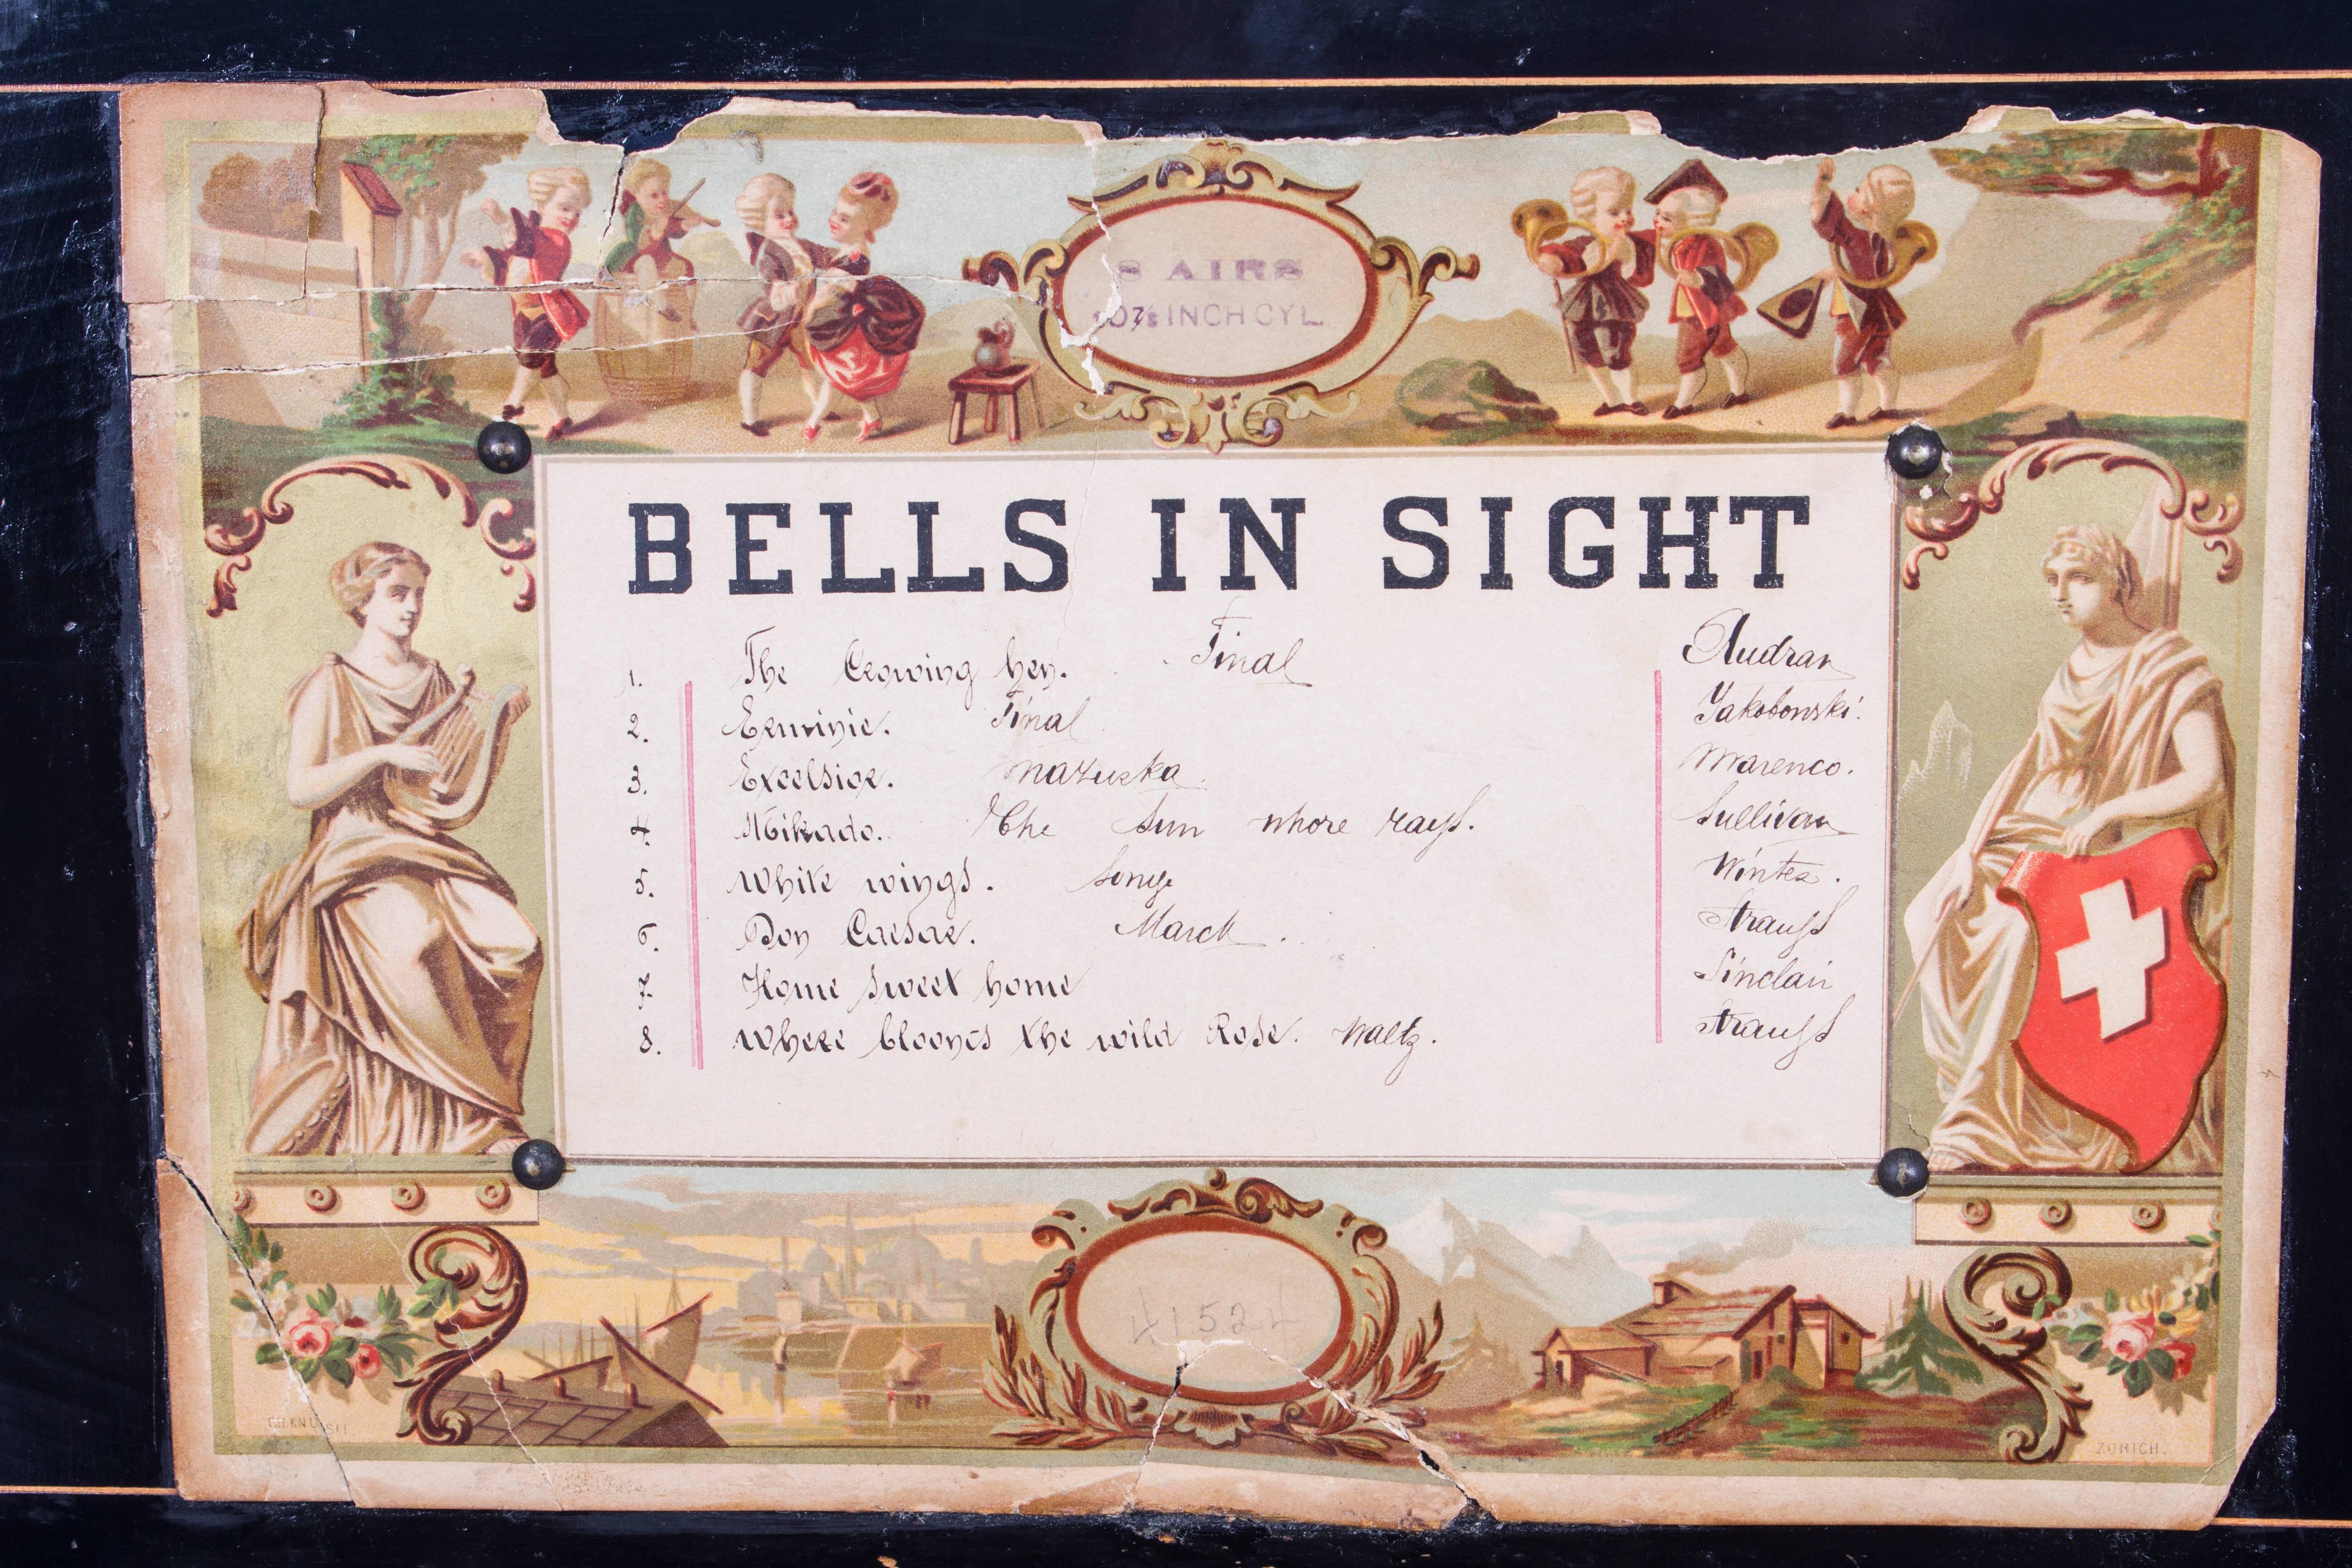 8 AIRS
INCH CYL.
BELLS IN SIGHT
1. The Crowing hen. Final Audran
2. Erminie. Final Jakobowski.
3. Excelsior. Mazurka. Marenco.
4. Mikado. The Sun whose rays. Sullivan
5. White wings. Song Winter.
6. Don Caesar. March. Strauss
7. Home sweet home Sinclair
8. Where blooms the wild Rose. Waltz. Strauss
41524
ZÜRICH.